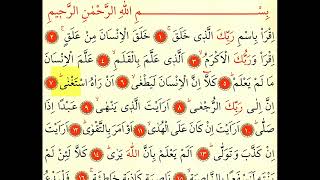 بِسْمِ اللّٰهِ الرَّحْمٰنِ الرَّحِيمِ
اِقْرَاْ بِاسْمِ رَبِّكَ الَّذِى خَلَقَ ﴿١﴾ خَلَقَ الْاِنْسَانَ مِنْ عَلَقٍ ﴿٢﴾
اِقْرَاْ وَرَبُّكَ الْاَكْرَمُ ﴿٣﴾ الَّذِى عَلَّمَ بِالْقَلَمِ ﴿٤﴾ عَلَّمَ الْاِنْسَانَ
مَا لَمْ يَعْلَمْ ﴿٥﴾ كَلَّا اِنَّ الْاِنْسَانَ لَيَطْغٰى ﴿٦﴾ اَنْ رَاٰهُ اسْتَغْنٰى ﴿٧﴾
اِنَّ اِلٰى رَبِّكَ الرُّجْعٰى ﴿٨﴾ اَرَاَيْتَ الَّذِى يَنْهٰى ﴿٩﴾ عَبْدًا اِذَا
صَلّٰى ﴿١٠﴾ اَرَاَيْتَ اِنْ كَانَ عَلَى الْهُدٰى ﴿١١﴾ اَوْ اَمَرَ بِالتَّقْوٰى ﴿١٢﴾ اَرَاَيْتَ
اِنْ كَذَّبَ وَتَوَلّٰى ﴿١٣﴾ اَلَمْ يَعْلَمْ بِاَنَّ اللّٰهَ يَرٰى ﴿١٤﴾ كَلَّا لَئِنْ لَمْ
نَاصِيَةٍ كَاذِبَةٍ خَاطِئَةٍ ﴿١٦﴾ فَلْيَدْعُ